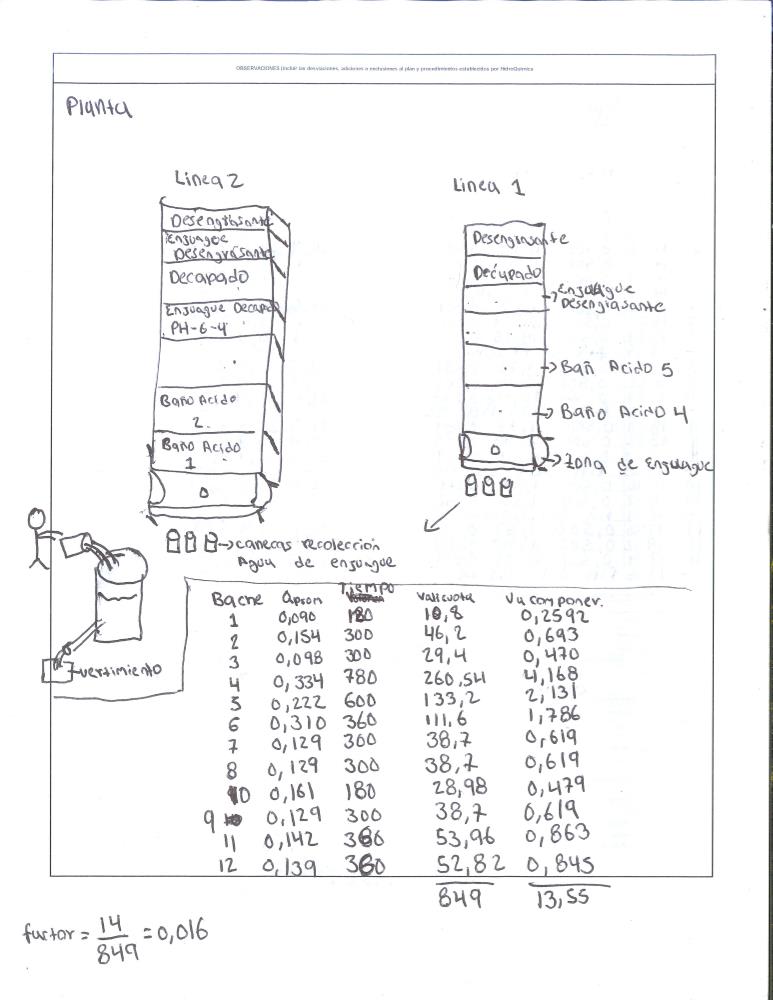 OBSERVACIONES (incluir las desviaciones, adiciones o exclusiones al plan y procedimientos establecidos por HidroQuímica
Planta
Linea 2
Desengrasante
Enjuague
Desengrasante
Decapado
Enjuague Decapa
PH-6-4
Baño Acido
2.
Baño Acido
1
0
canecas recolección
Agua de enjuague
Linea 1
Desengrasante
Decapado
Enjuague
Desengrasante
Bañ Acido 5
Baño Acido 4
0
Zona de Enjuague
vertimiento
Bache Qprom Tiempo Valicuota Va componer.
1 0,090 180 10,8 0,2592
2 0,154 300 46,2 0,693
3 0,098 300 29,4 0,470
4 0,334 780 260,54 4,168
5 0,222 600 133,2 2,131
6 0,310 360 111,6 1,786
7 0,129 300 38,7 0,619
8 0,129 300 38,7 0,619
10 0,161 180 28,98 0,479
9 0,129 300 38,7 0,619
11 0,142 380 53,96 0,863
12 0,139 380 52,82 0,845
849 13,55
factor = 14/849 = 0,016